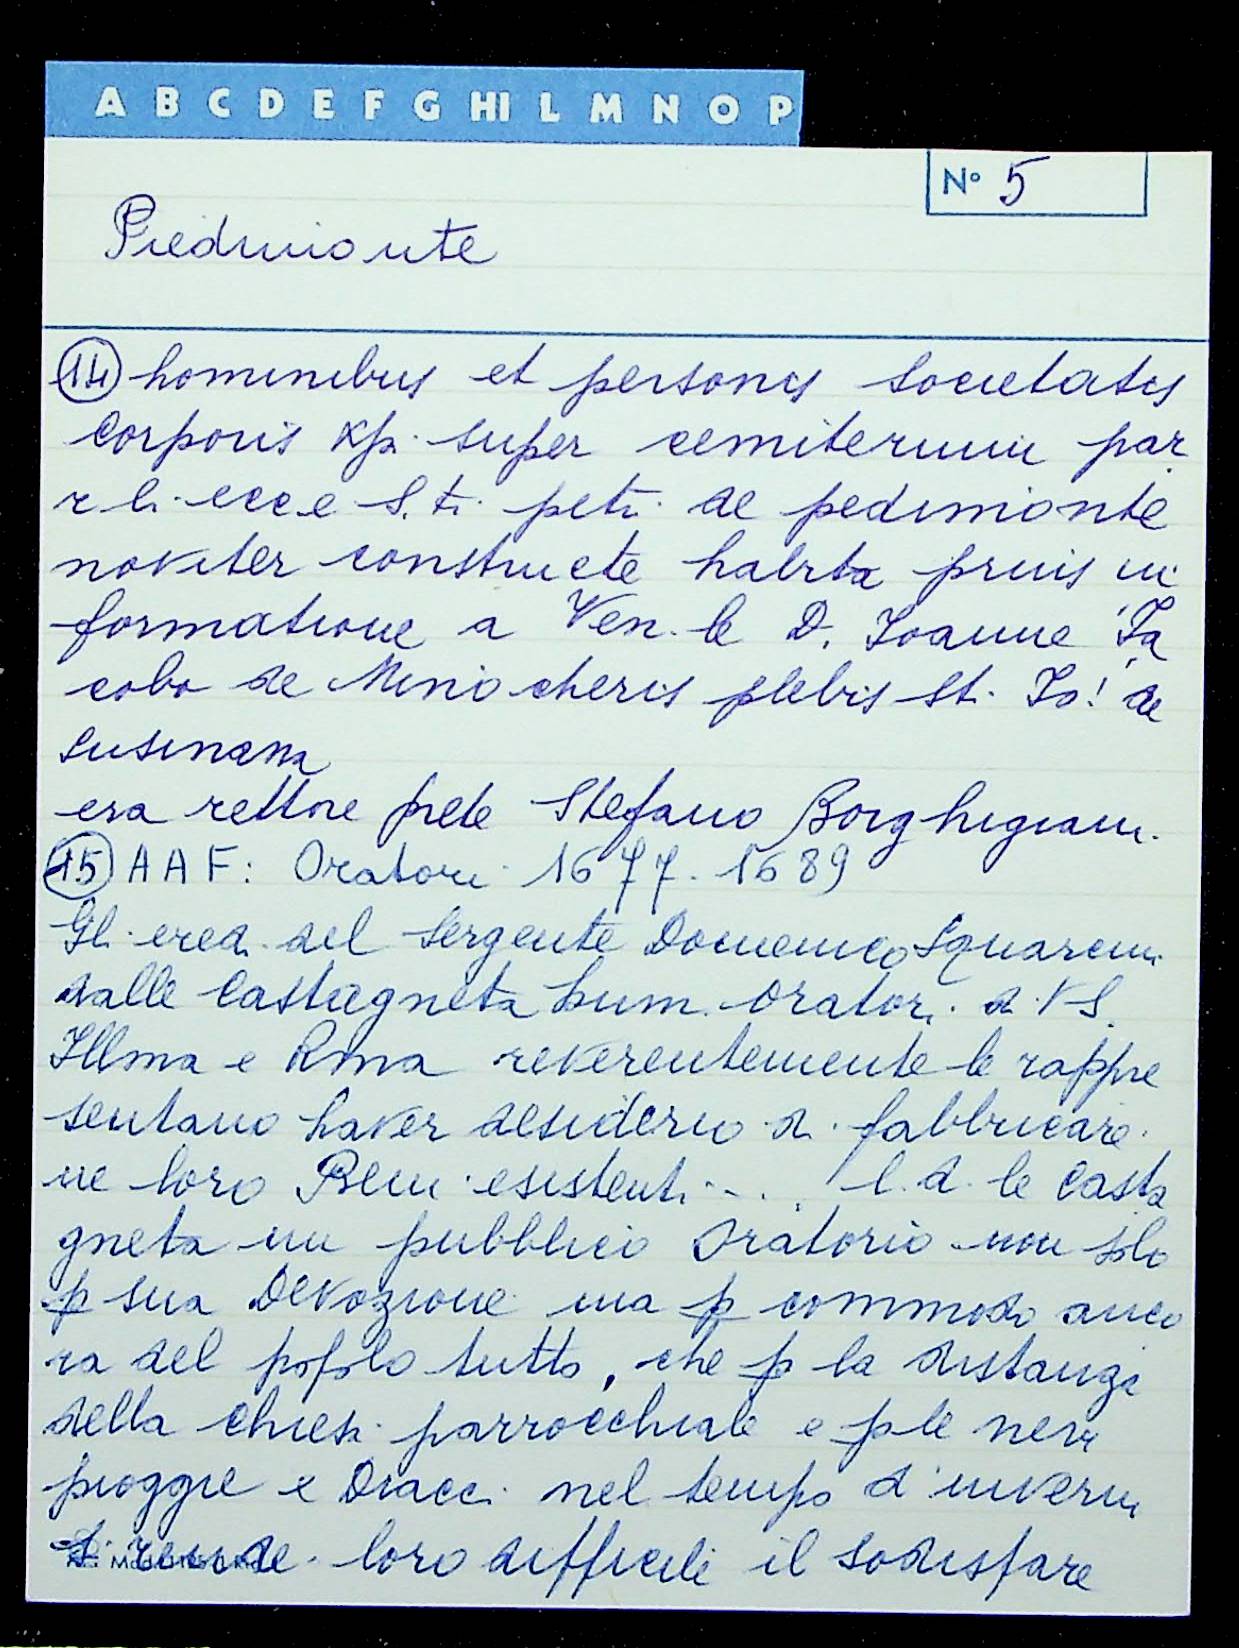 A B C D E F G HI L M N O P
N° 5
Piedimonte
14 hominibus et personis societatis
corporis xpi super cemiterium par
r li. ecc.e S.ti petri de pedimonte
noviter constructe habita prius in
formatione a Ven. le D. Joanne Ja
cobo de Minocheris plebis st. Jo! de
susinana
era rettore prete Stefano Borghigiani.
15 A A F: Oratori 1677. 1689
Gli eredi del Sergente Domenico Squarcini
dalle Castagneta hum. oratori. a. V S.
Illma e Rma reverentemente le rappre
sentano haver desiderio di fabbricare
ne loro Beni esistenti ... l. d. le Casta
gneta un pubblico Oratorio non solo
p sua Devozione ma p commodo anco
ra del popolo tutto, che p la distanza
della chiesa parrocchiale e p le nevi
piogge e Diacci nel tempo d'inverno
si rende loro difficile il sodisfare